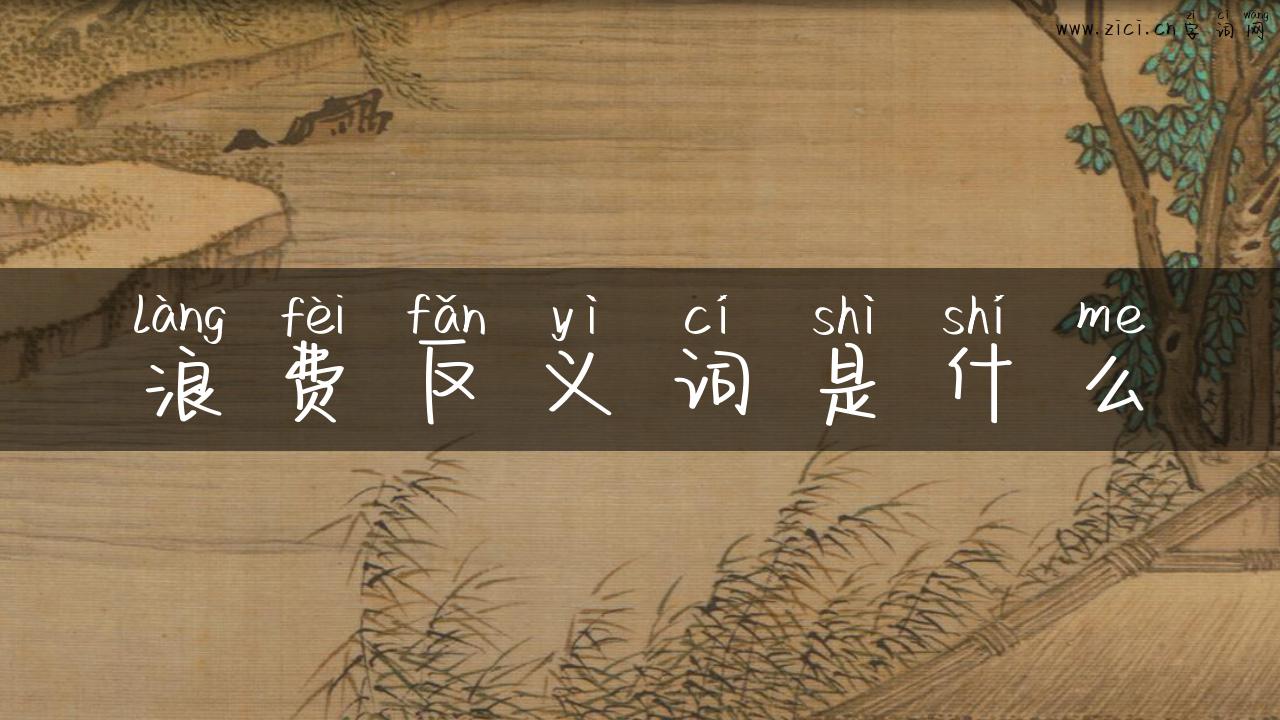 zì cí wǎng
www.zici.cn字词网
làng fèi fǎn yì cí shì shí me
浪费反义词是什么